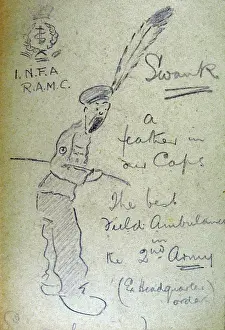 I.N.F.A
R.A.M.C.
Swank
a
feather in
our Caps
The best
Field Ambulance
in
the 2nd Army
(Ex Headquarters)
orders